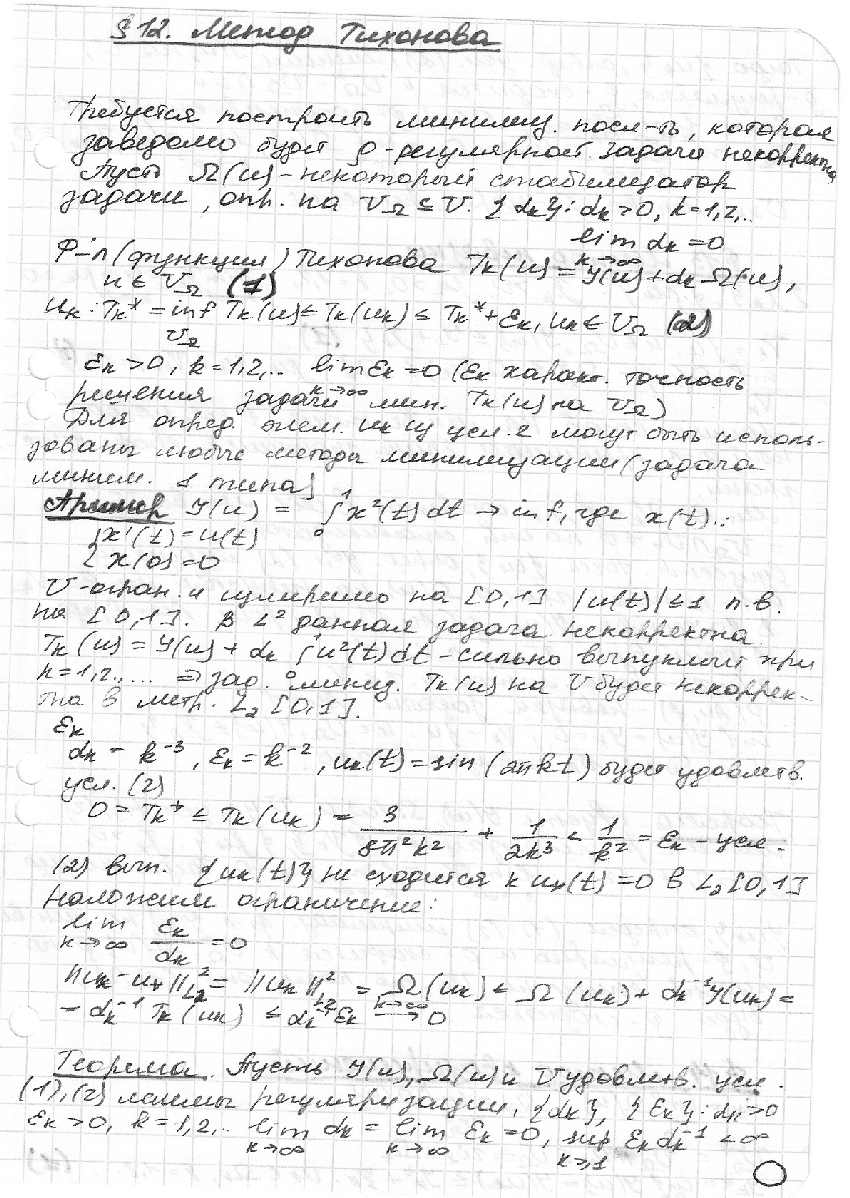 §12. Метод Тихонова
Требуется построить минимиз. посл-ть, которая
заведомо будет ρ-регулярной. Задача некорректна
Пусть Ω(u) - некоторый стабилизатор
задачи, опр. на V_Ω ⊆ V. {α_k}: α_k > 0, k=1,2,..
lim_{k→∞} α_k = 0
Ф-л (функция) Тихонова T_k(u) = J(u) + α_k Ω(u),
u ∈ V_Ω (1)
u_k: T_k* = inf_{V_Ω} T_k(u) ≤ T_k(u_k) ≤ T_k* + ε_k, u_k ∈ V_Ω (2)
ε_k > 0, k=1,2,.. lim_{k→∞} ε_k = 0 (ε_k характ. точность
решения задачи мин. T_k(u) на V_Ω)
Для опред. элем. u_k из усл. 2 могут быть исполь-
зованы любые методы минимизации (задача
миним. 1 типа)
Пример J(u) = ∫_0^1 x²(t) dt → inf, где x(t):
{x'(t) = u(t)
{x(0) = 0
V-огран. и измеримо на [0,1] |u(t)| ≤ 1 п.в.
на [0,1]. В L² данная задача некорректна
T_k(u) = J(u) + α_k ∫_0^1 u²(t) dt - сильно выпуклый при
k=1,2,... ⇒ зад. миниз. T_k(u) на V будет некоррек-
тна в метр. L_2 [0,1].
ε_k
α_k = k^{-3}, ε_k = k^{-2}, u_k(t) = sin(2πkt) будет удовлетв.
усл. (2)
0 = T_k* ≤ T_k(u_k) = 3/(8π²k²) + 1/(2k³) < 1/k² = ε_k - усл.
(2) вып. {u_k(t)} не сходится к u_*(t) = 0 в L_2 [0,1]
Наложим ограничение:
lim_{k→∞} ε_k/α_k = 0
||u_k - u_*||²_{L_2} = ||u_k||²_{L_2} = Ω(u_k) ≤ Ω(u_k) + α_k^{-1} J(u_k) =
= α_k^{-1} T_k(u_k) ≤ α_k^{-1} ε_k →_{k→∞} 0
Теорема. Пусть J(u), Ω(u) и V удовлетв. усл.
(1), (2) леммы регуляризации, {α_k}, {ε_k}: α_k > 0
ε_k > 0, k=1,2,.. lim_{k→∞} α_k = lim_{k→∞} ε_k = 0, sup_{k≥1} ε_k α_k^{-1} < ∞